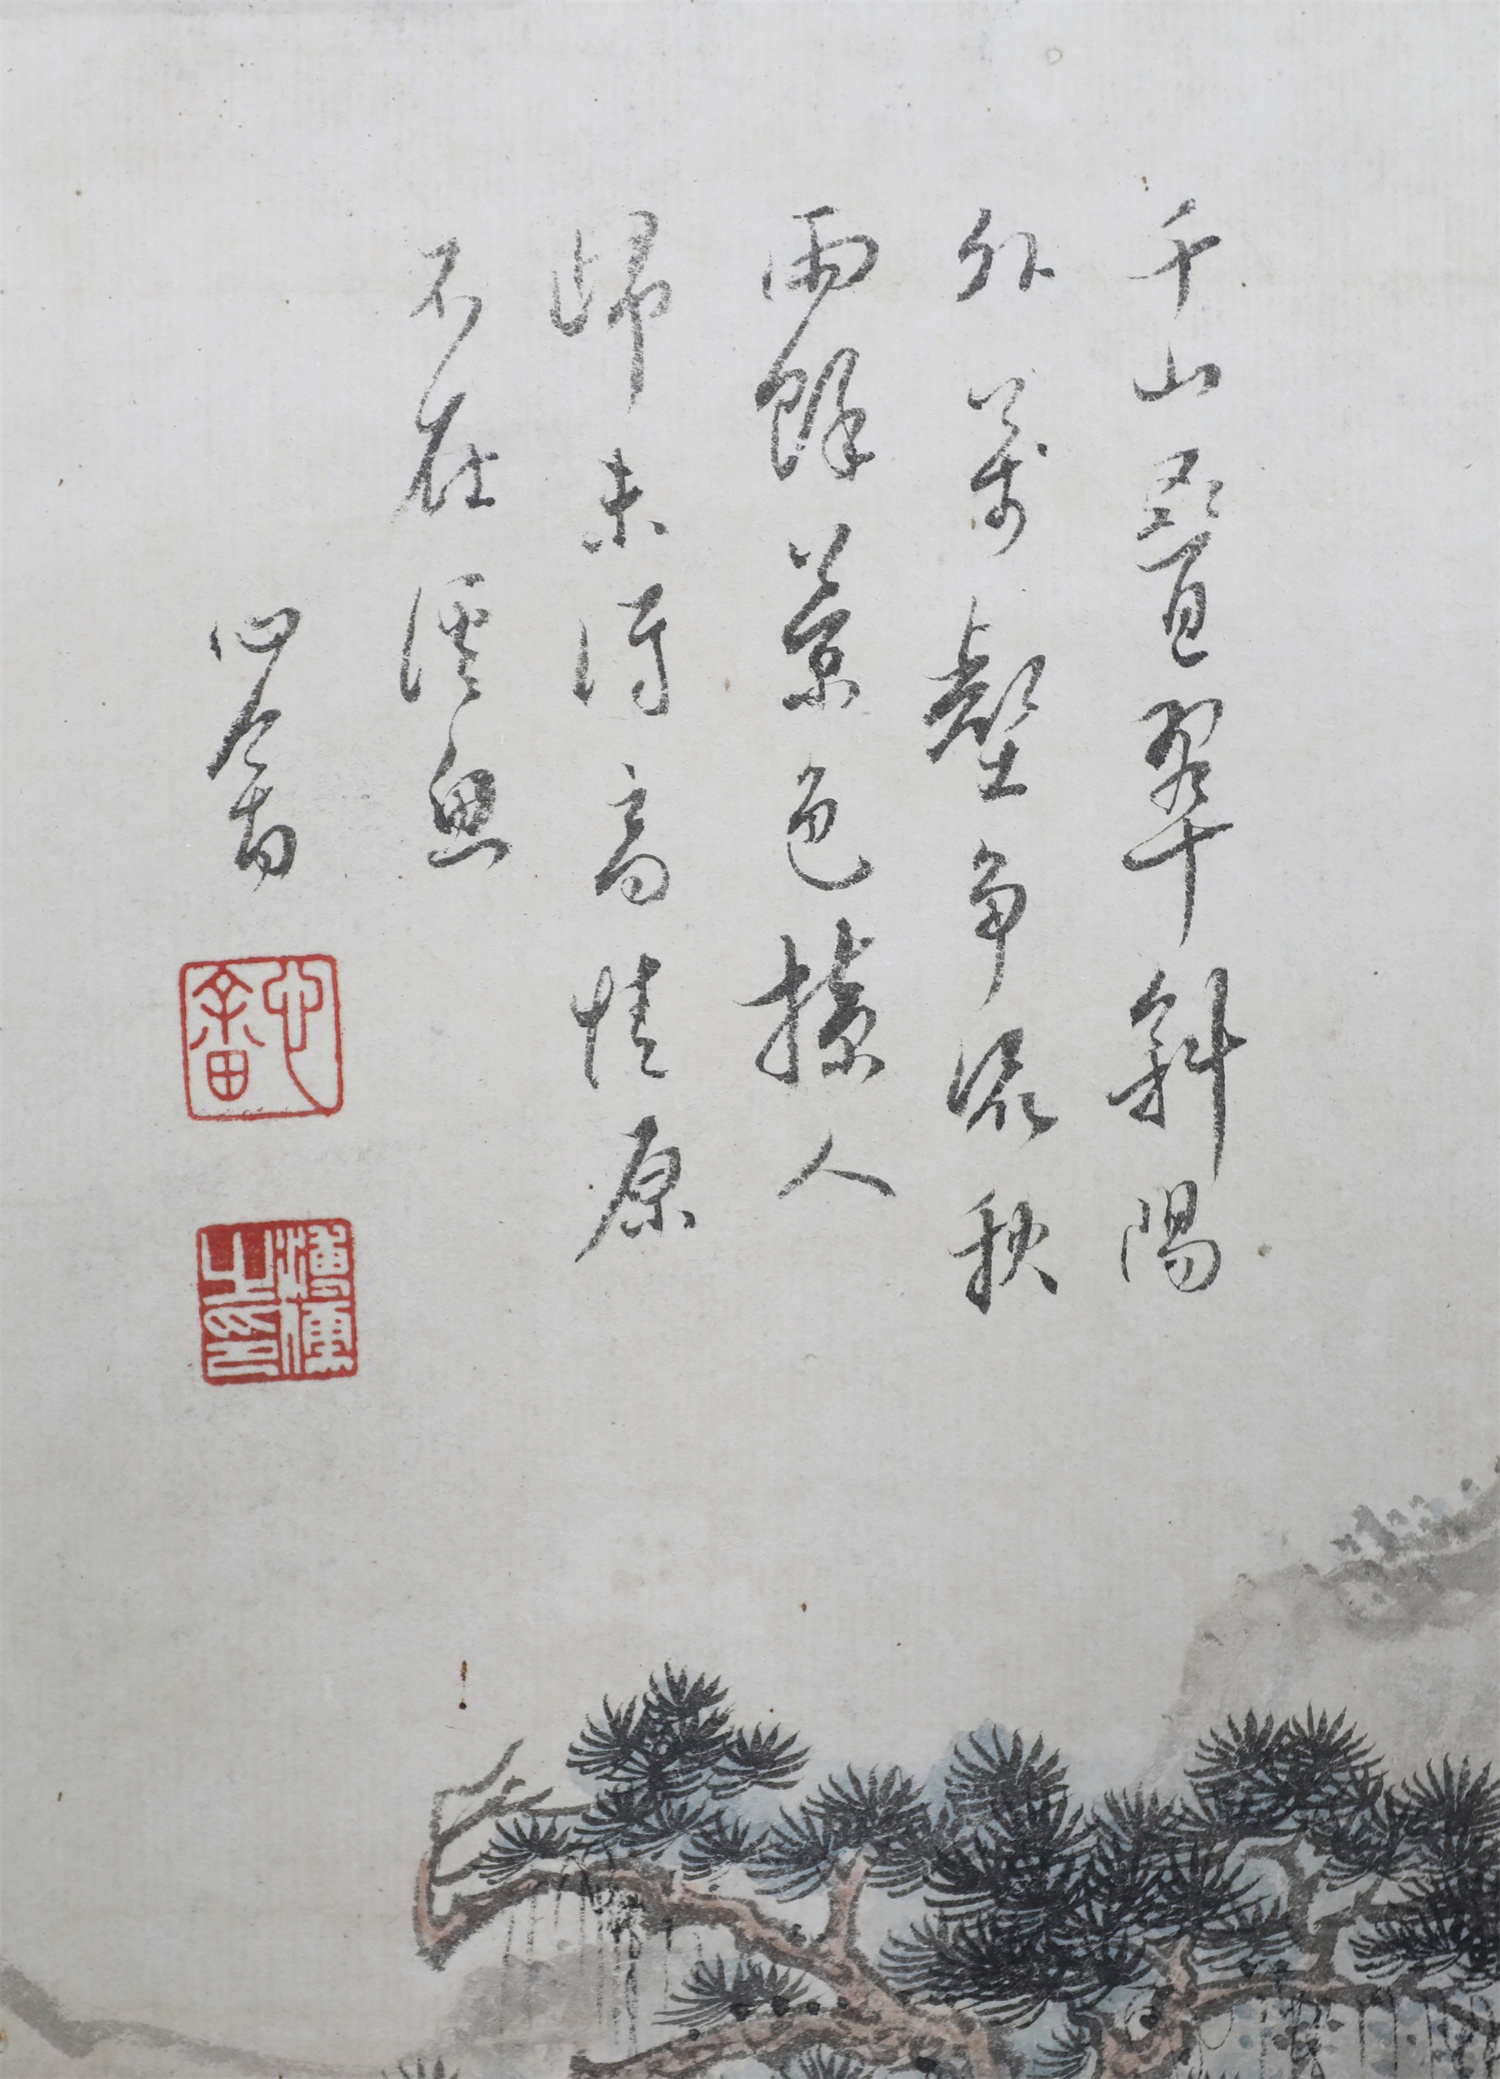 千山疊翠斜陽
外萬壑爭流秋
雨餘景色撩人
歸未得高情原
不在溪魚
心畬
溥儒之印